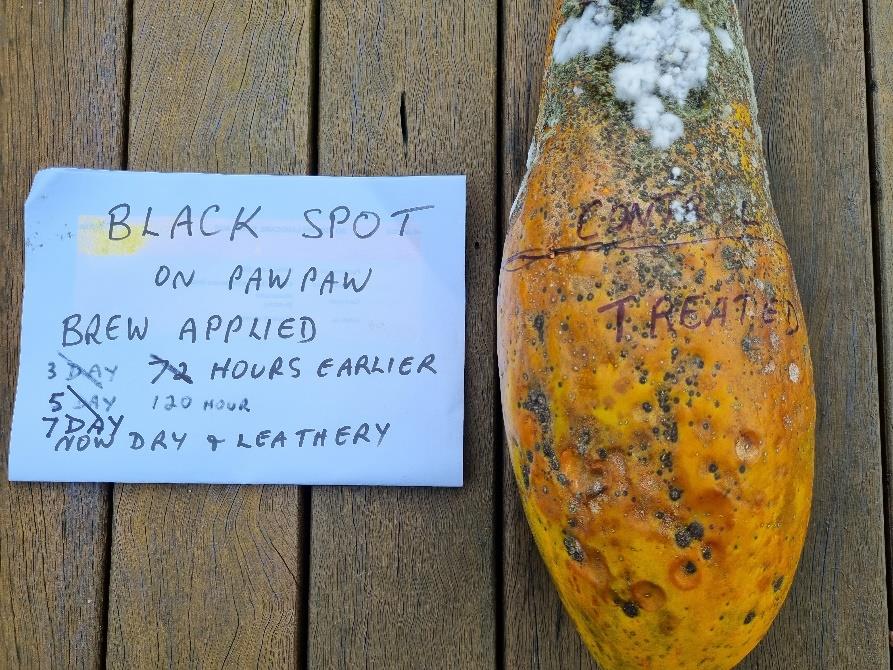 BLACK SPOT
ON PAWPAW
BREW APPLIED
3 DAY 72 HOURS EARLIER
5 DAY 120 HOUR
7 DAY
NOW DRY & LEATHERY
CONTROL
TREATED